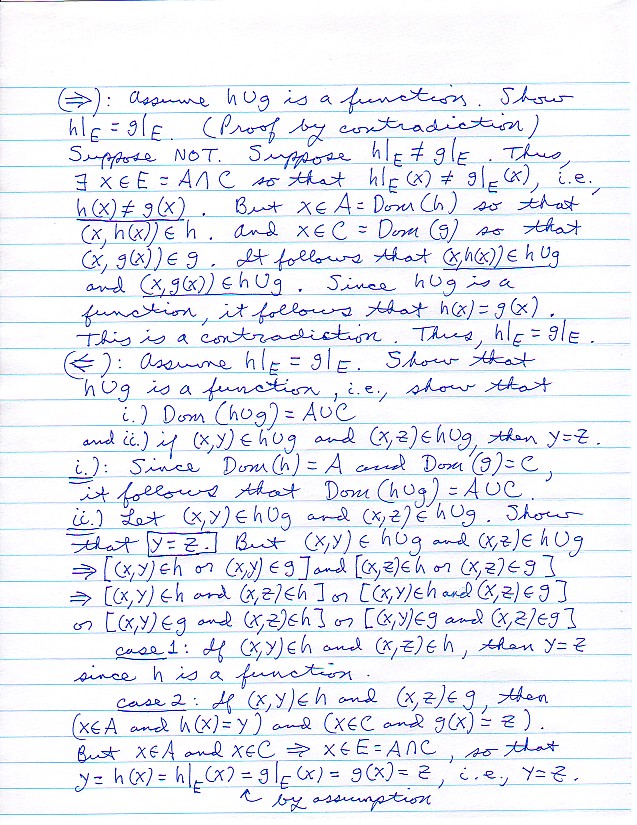 (⇒): Assume h∪g is a function. Show
h|_E = g|_E. (Proof by contradiction)
Suppose NOT. Suppose h|_E ≠ g|_E. Thus,
∃ x∈E = A∩C so that h|_E(x) ≠ g|_E(x), i.e.,
h(x) ≠ g(x). But x∈A = Dom(h) so that
(x, h(x))∈h. And x∈C = Dom(g) so that
(x, g(x))∈g. It follows that (x,h(x))∈h∪g
and (x,g(x))∈h∪g. Since h∪g is a
function, it follows that h(x)=g(x).
This is a contradiction. Thus, h|_E = g|_E.
(⇐): Assume h|_E = g|_E. Show that
h∪g is a function, i.e., show that
i.) Dom(h∪g) = A∪C
and ii.) if (x,y)∈h∪g and (x,z)∈h∪g, then y=z.
i.): Since Dom(h)=A and Dom(g)=C,
it follows that Dom(h∪g)=A∪C.
ii.) Let (x,y)∈h∪g and (x,z)∈h∪g. Show
that y=z. But (x,y)∈h∪g and (x,z)∈h∪g
⇒ [(x,y)∈h or (x,y)∈g] and [(x,z)∈h or (x,z)∈g]
⇒ [(x,y)∈h and (x,z)∈h] or [(x,y)∈h and (x,z)∈g]
or [(x,y)∈g and (x,z)∈h] or [(x,y)∈g and (x,z)∈g]
case 1: If (x,y)∈h and (x,z)∈h, then y=z
since h is a function.
case 2: If (x,y)∈h and (x,z)∈g, then
(x∈A and h(x)=y) and (x∈C and g(x)=z).
But x∈A and x∈C ⇒ x∈E=A∩C, so that
y = h(x) = h|_E(x) = g|_E(x) = g(x) = z, i.e., y=z.
↑ by assumption